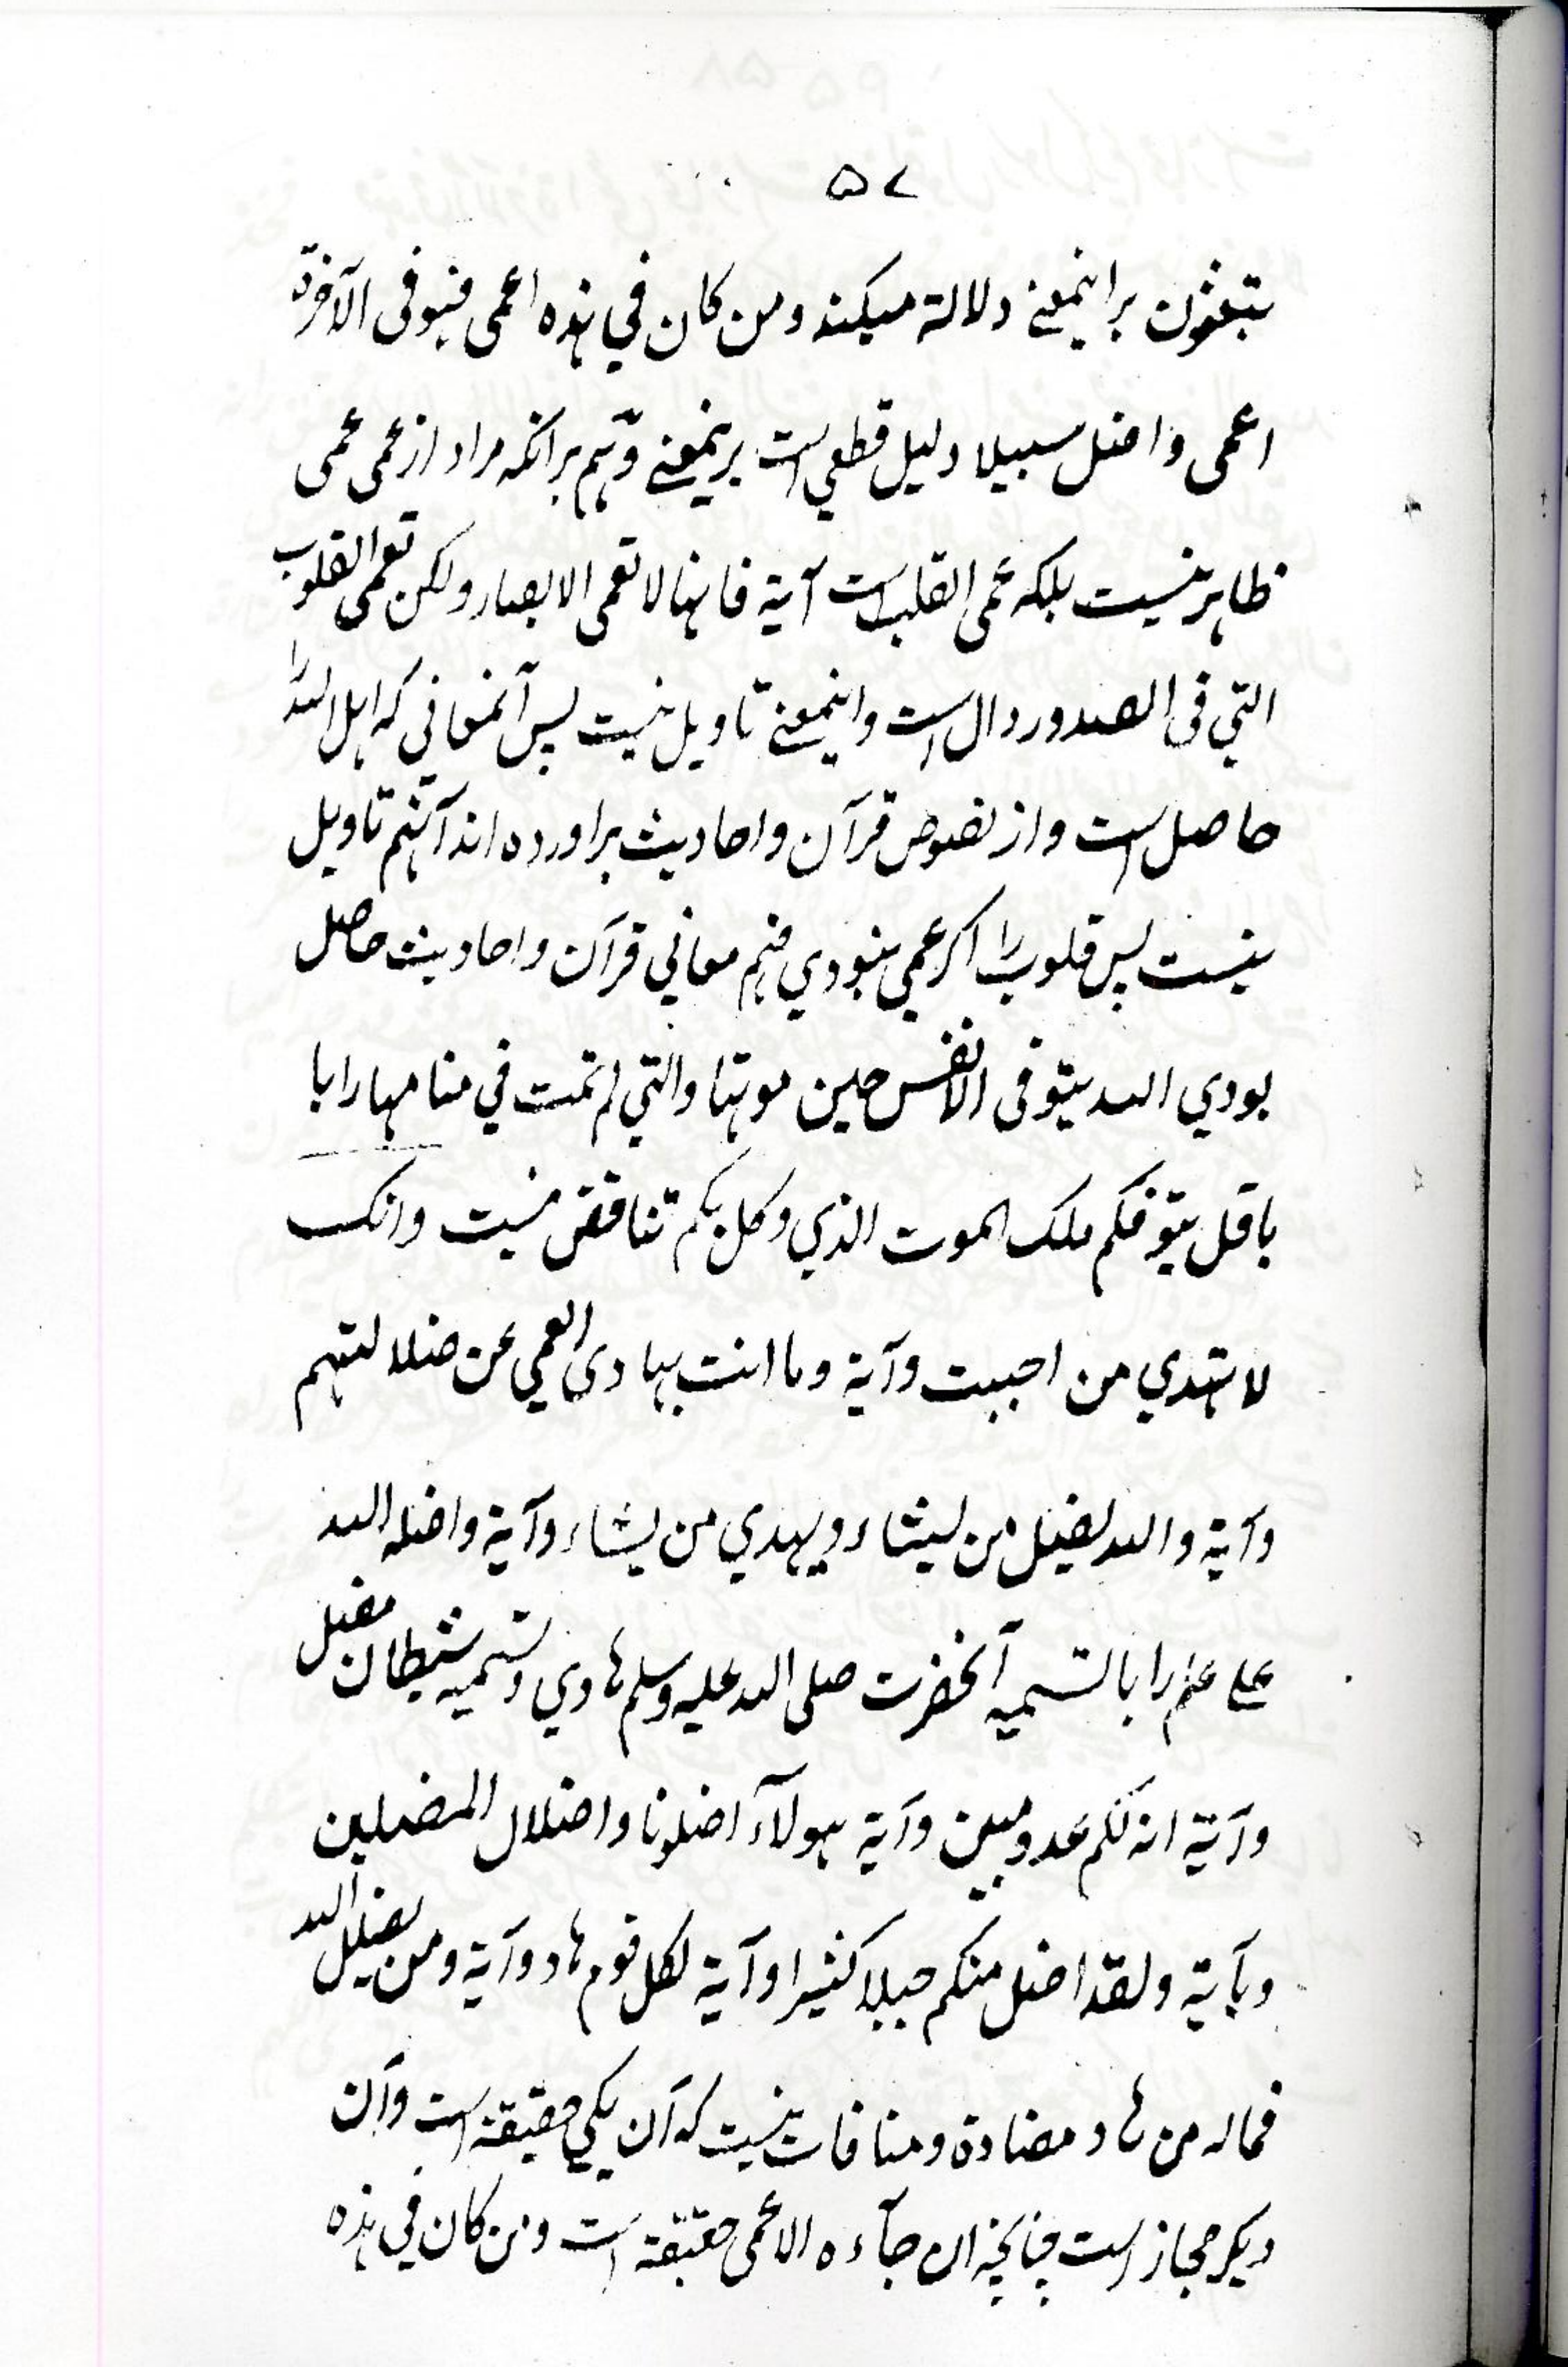 ۵۷
تبعثون بر اینمعنے دلالة میکند ومن کان فی هذه اعمی فهو فی الآخرة
اعمی واضل سبیلا دلیل قطعی است برینمعنے وهم برانکه مراد از عمی عمی
ظاهر نیست بلکه عمی القلب است آیة فانها لا تعمی الابصار ولکن تعمی القلوب
التی فی الصدور دال است واینمعنے تاویل نیست پس آنمعانی که اهل الله را
حاصل است واز نصوص قرآن واحادیث براورده اند آنهم تاویل
نیست پس قلوب را اکر عمی نبودی فهم معانی قرآن واحادیث حاصل
بودی الله یتوفی الانفس حین موتها والتی لم تمت فی منامها را با
با قل یتوفکم ملک الموت الذی وکل بکم تناقض نیست وانک
لا تهدی من احببت وآیة وما انت بهادی العمی عن ضلالتهم
وآیة والله یضل من یشاء ویهدی من یشاء وآیة واضله الله
علی علم را با تسمیه آنحضرت صلی الله علیه وسلم هادی وتسمیه شیطان مضل
وآیة انه لکم عدو مبین وآیة هولآء اضلونا واضلال المضلین
وبآیة ولقد اضل منکم جبلا کثیرا وآیة لکل قوم هاد وآیة ومن یضلل الله
فماله من هاد مضادة ومنافات نیست که آن یکی حقیقة است وآن
دیکر مجاز است چنانچه ان جآءه الاعمی حقیقة است ومن کان فی هذه